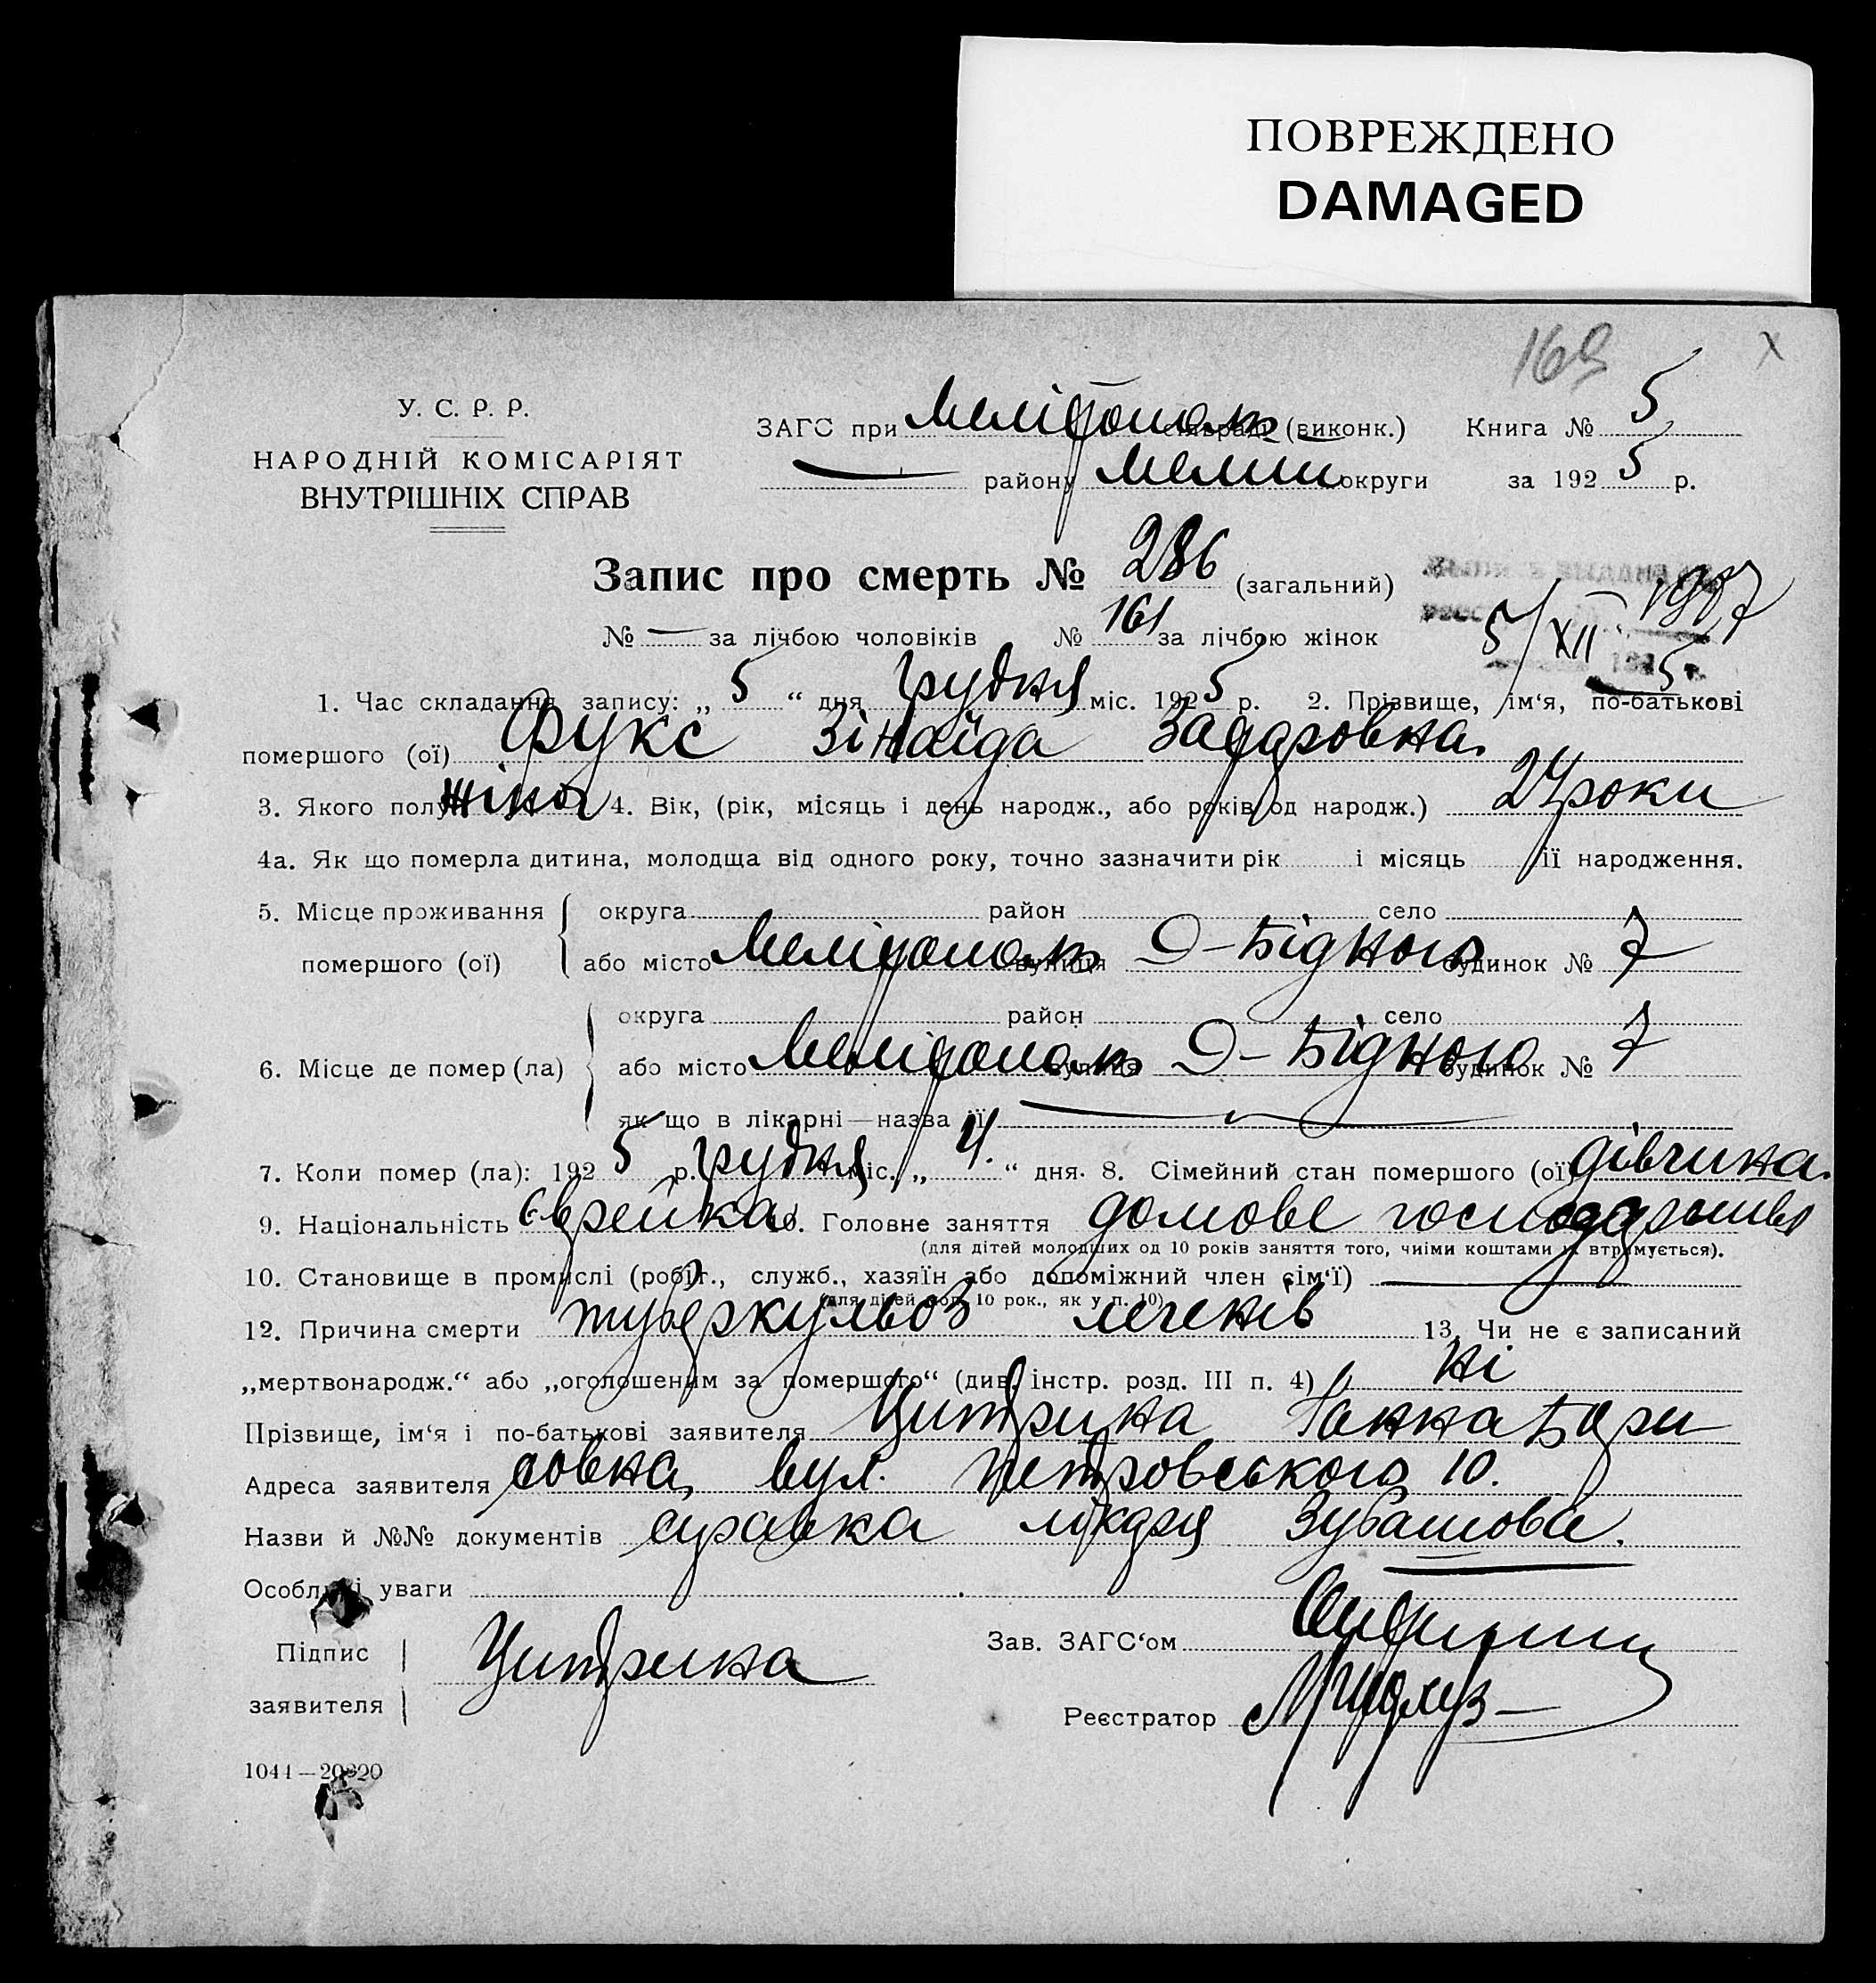 ПОВРЕЖДЕНО
DAMAGED
169 x
У. С. Р. Р.
НАРОДНІЙ КОМІСАРІЯТ
ВНУТРІШНІХ СПРАВ
ЗАГС при Мелітополь сільраді (виконк.) Книга № 5
— району Мелит округи за 1925 р.
Запис про смерть № 286 (загальний)
№ — за лічбою чоловіків № 161 за лічбою жінок
5/XII
1. Час складання запису: „5“ дня грудня міс. 1925 р. 2. Прізвище, ім‘я, по-батькові
помершого (ої) Фукс Зінаїда
3. Якого полу жіноч 4. Вік, (рік, місяць і день народж., або років од народж.) 24 роки
4а. Як що померла дитина, молодща від одного року, точно зазначити рік і місяць її народження.
5. Місце проживання помершого (ої) округа район село
або місто Мелітополь вулиця Д-Бідного будинок № 7
6. Місце де помер (ла) округа район село
або місто Мелітополь вулиця Д-Бідного будинок № 7
як що в лікарні—назва її —
7. Коли помер (ла): 1925 р. грудня міс. „4.“ дня. 8. Сімейний стан помершого (ої) дівчина.
9. Національність єврейка 10. Головне заняття домове господарство
(для дітей молодших од 10 років заняття того, чиїми коштами їх втримується).
10. Становище в промислі (робіт., служб., хазяїн або допоміжний член сім‘ї) —
(для дітей мол. 10 рок., як у п. 10)
12. Причина смерти туберкульоз легенів 13. Чи не є записаний
„мертвонародж.“ або „оголошеним за помершого“ (див. інстр. розд. III п. 4) ні
Прізвище, ім‘я і по-батькові заявителя Цитрина Ганна Бори
Адреса заявителя совна, вул. Петровського 10.
Назви й №№ документів справка лікаря Зубашова.
Особливі уваги
Підпис заявителя Цитрина
Зав. ЗАГС‘ом
Реєстратор
1044—20820